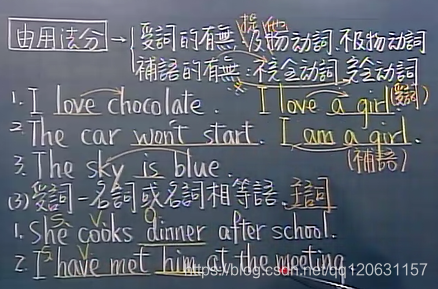 由用法分 → 受詞的有無:及物动詞.不及物动詞
補語的有無:不完全动詞.完全动詞
1. I love chocolate. I love a girl (受詞)
2. The car won't start. I am a girl. (補語)
3. The sky is blue.
(3)受詞-名詞或名詞相等語.
S V O
1. She cooks dinner after school.
S V
2. I have met him at the meeting
https://blog.csdn.net/qq120631157